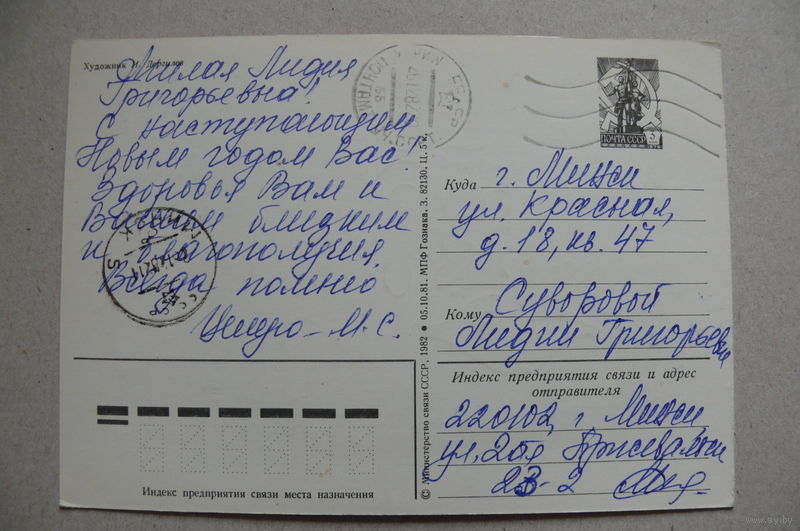 Художник И. Дергилев
Милая Лидия
Григорьевна!
С наступающим
Новым годом Вас!
Здоровья Вам и
Вашим близким
и благополучия.
Всегда помню.
М. С.
Индекс предприятия связи места назначения
© Министерство связи СССР, 1982 ● 05.10.81. МПФ Гознака. З. 82130. Ц. 5 к.
ПОЧТА СССР
Куда г. Минск
ул. Красная,
д. 18, кв. 47
Кому Суворовой
Лидии Григорьевне
Индекс предприятия связи и адрес
отправителя
220102, г. Минск,
ул. 2ая
23-2
www.ay.by